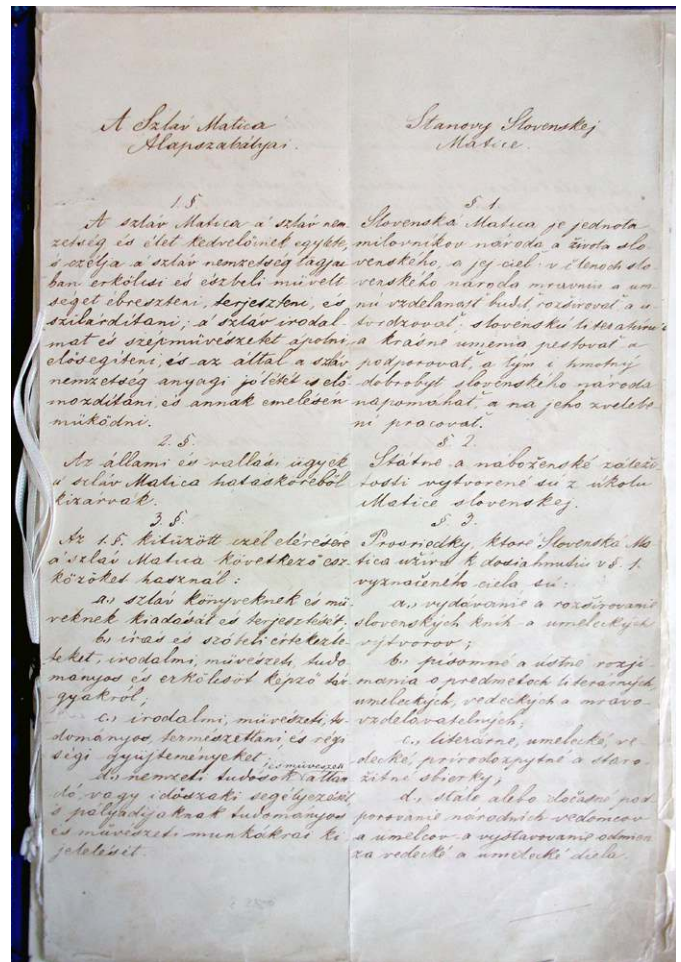 A Szláv Matica
Alapszabályai.
1. §.
A szláv Matica a' szláv nem-
zetség és élet kedvelőinek egylete,
s czélja a' szláv nemzetség tagjai-
ban erkölcsi és észbeliművelt-
séget ébreszteni, terjeszteni, és
szilárdítani; a' szláv irodal-
mat és szépművészetet ápolni
elősegíteni, és az által a szláv
nemzetség anyagi jólétét is elő-
mozdítani, és annak emelésén
működni.
2. §.
Az állami és vallási ügyek
a' szláv Matica hatásköréből
kizárvák.
3. §.
Az 1. §. kitűzött czél elérésére
a' szláv Matica következő esz-
közöket használ:
a., szláv könyveknek és mű-
veknek kiadását és terjesztését;
b., írás és szóbeli értekezle-
teket, irodalmi, művészeti, tudo-
mányos és erkölcsöt képző tár-
gyakról;
c., irodalmi, művészeti, tu-
dományos, természettani, és régi-
ségi gyűjteményeket;
d., nemzeti tudósok és művészek állan-
dó, vagy időszaki segélyezését
s pályadíjaknak tudományos
és művészeti munkákra ki-
jelelésit.
Stanovy Slovenskej
Matice.
§ 1.
Slovenská Matica je jednota
milovníkov národa a života slo-
venského, a jej cieľ v členoch slo-
venského národa mravnú a um-
nú vzdelanosť budiť, rozširovať a u-
tvrdzovať, slovenskú literatúru
a krásne umenia pestovať a
podporovať, a tým i hmotný
dobrobyt slovenského národa
napomáhať, a na jeho zvelebe-
ní pracovať.
§ 2.
Státne a náboženské zálež-
itosti vytvorené sú z úkolu
Matice slovenskej.
§ 3.
Prosriedky, ktoré Slovenská Ma-
tica užíva k dosiahnutiu v § 1.
vyznačeného cieľa sú:
a., vydávanie a rozširovanie
slovenských kníh a umeleckých
výtvorov;
b., písomné a ústné rozjí-
mania o predmetoch literárnych,
umeleckých, vedeckých a mravo-
vzdelávateľných;
c., literárne, umelecké, ve-
decké, prírodozpytné a staro-
žitné sbierky;
d., stále alebo dočasné pod-
porovanie národních vedomcov
a umelcov a vystavovanie odmien
za vedecké a umelecké diela.